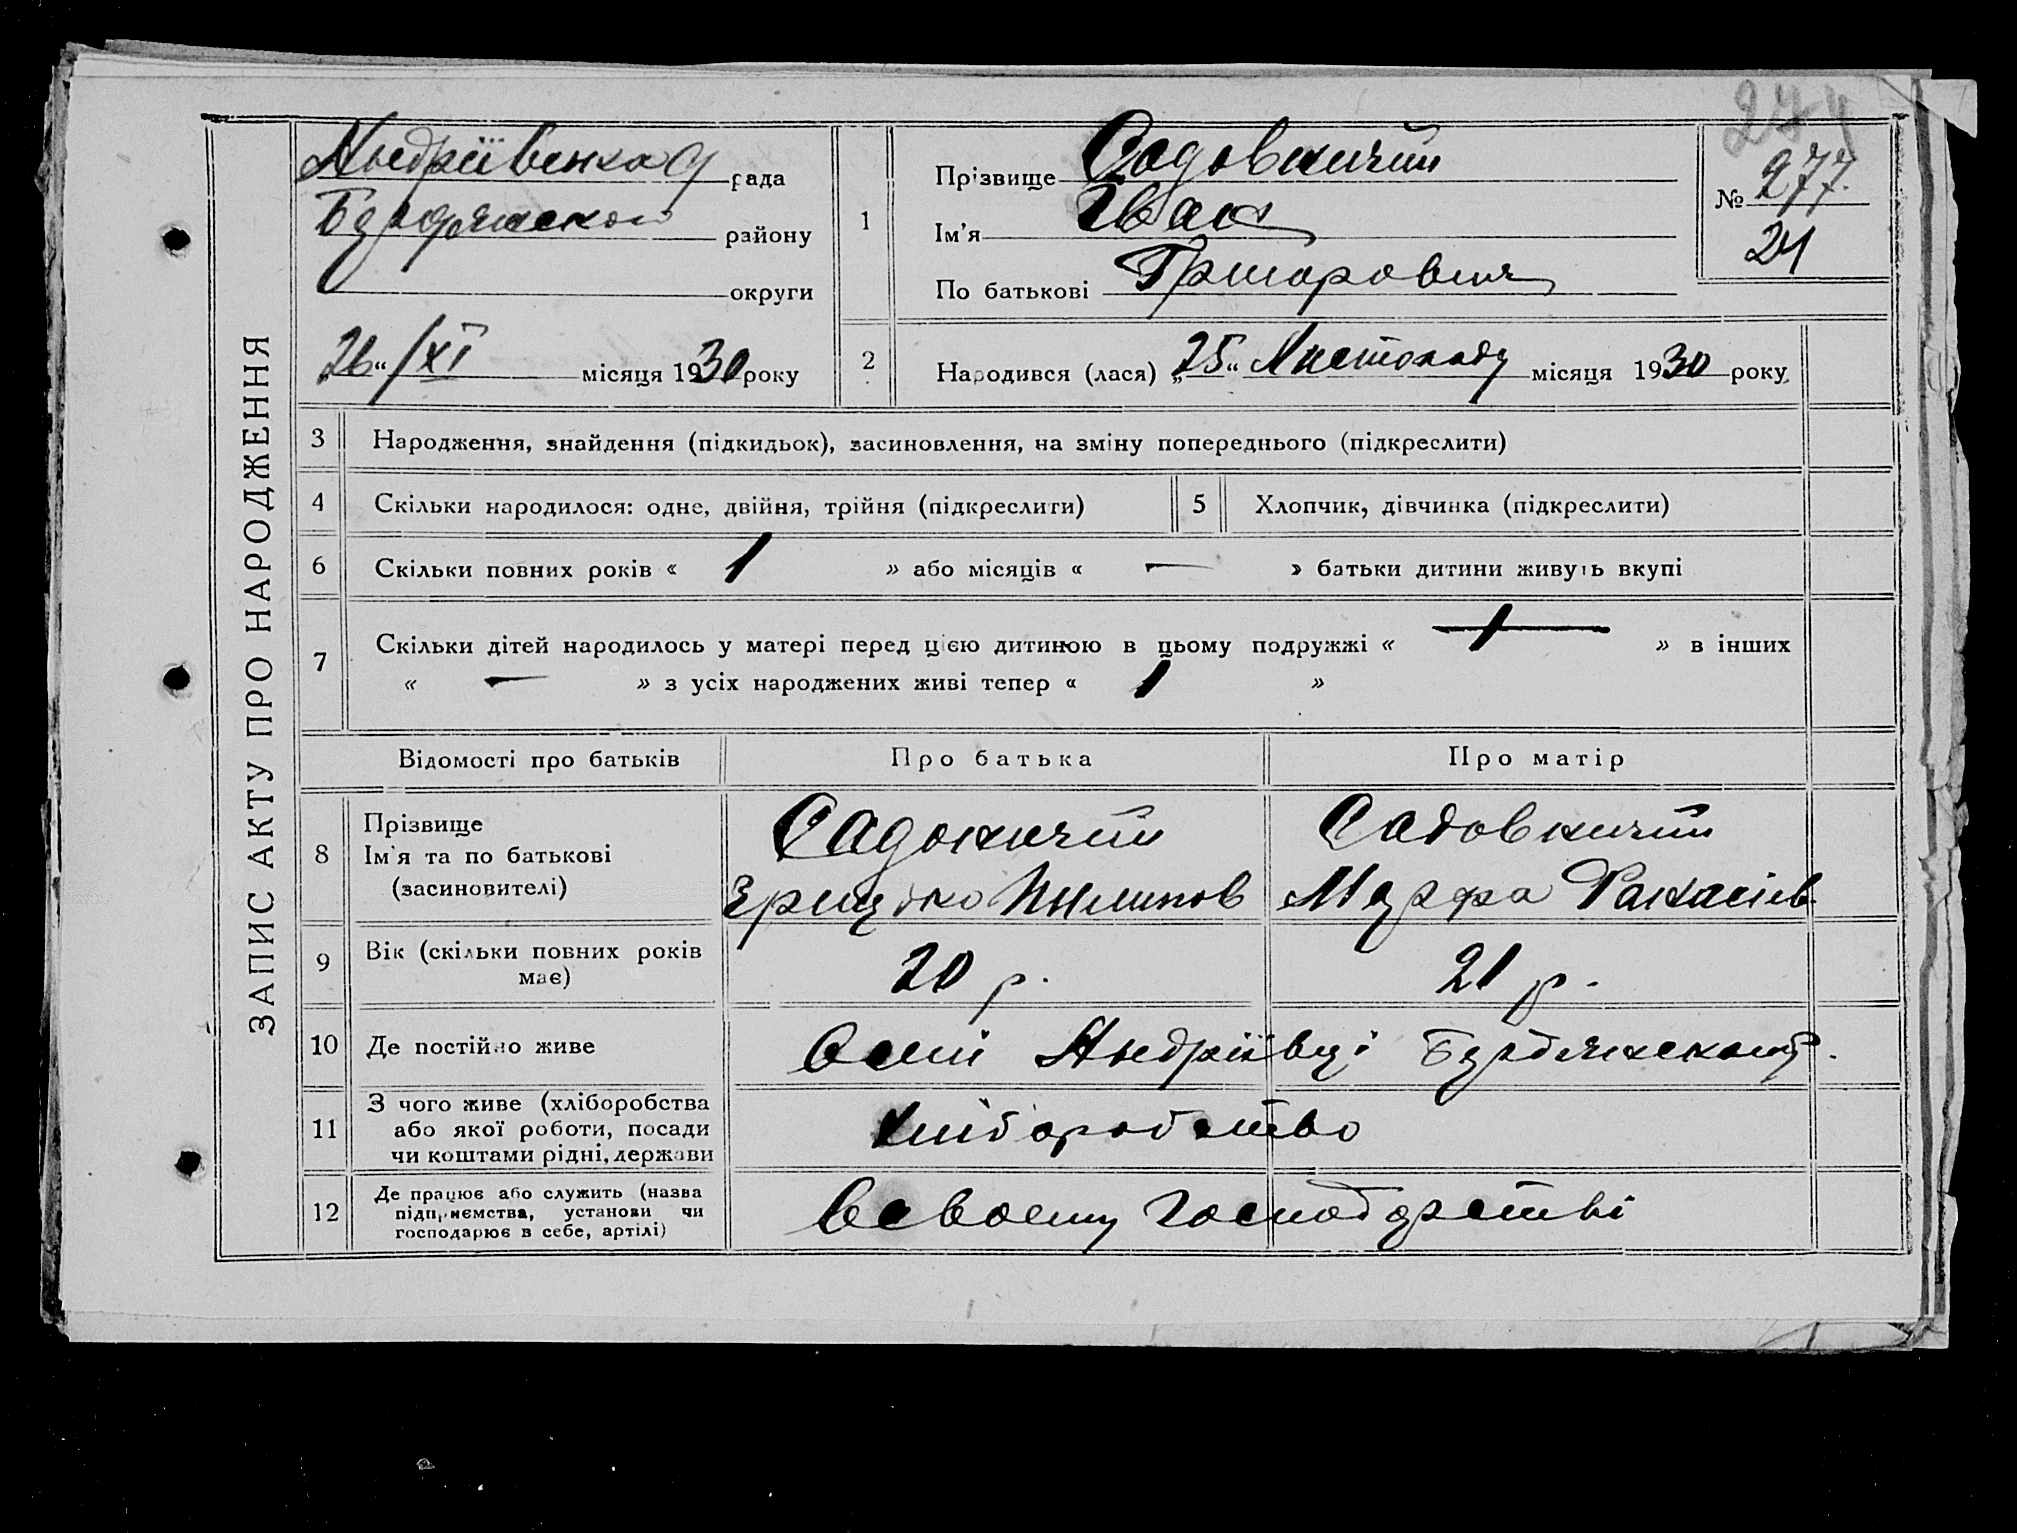 274
Андріївська рада
Бердянског району
округи
26 “ /XI місяця 1930 року
ЗАПИС АКТУ ПРО НАРОДЖЕННЯ
1
Прізвище Садовничий
Ім’я Іван
По батькові Григорович
№ 277.
24
2
Народився (лася) „ 25 “ Листопаду місяця 1930 року
3 Народження, знайдення (підкидьок), засиновлення, на зміну попереднього (підкреслити)
4 Скільки народилося: одне, двійня, трійня (підкреслити) 5 Хлопчик, дівчинка (підкреслити)
6 Скільки повних років « 1 » або місяців « — » батьки дитини живуть вкупі
7 Скільки дітей народилось у матері перед цією дитиною в цьому подружжі « 1 » в інших
« — » з усіх народжених живі тепер « 1 »
Відомості про батьків Про батька Про матір
8 Прізвище
Ім’я та по батькові
(засновителі)
Садовничий
Грицько Пилипов
Садовничий
Марфа Панасієв
9 Вік (скільки повних років
має)
20 р. 21 р.
10 Де постійно живе Вселі Андріївці Бердянског
11 З чого живе (хліборобства
або якої роботи, посади
чи коштами рідні, держави
Хліборобство
12 Де працює або служить (назва
підприємства, установи чи
господарює в себе, артілі)
Всвоєму господарстві